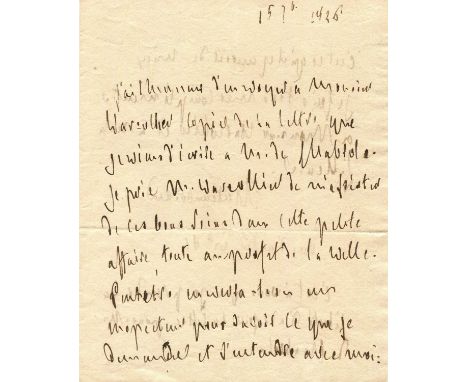 15 7b. 1826
j'ai l'honneur d'envoyer à Monsieur
copie de la lettre que
je viens d'écrire a Mr. de
je prie Mr. de
de ces bons soins dans cette petite
affaire, toute au profit de la ville.
Peutetre enverra-t-on un
inspecteur pour savoir ce que je
demande et s'entendre avec moi.